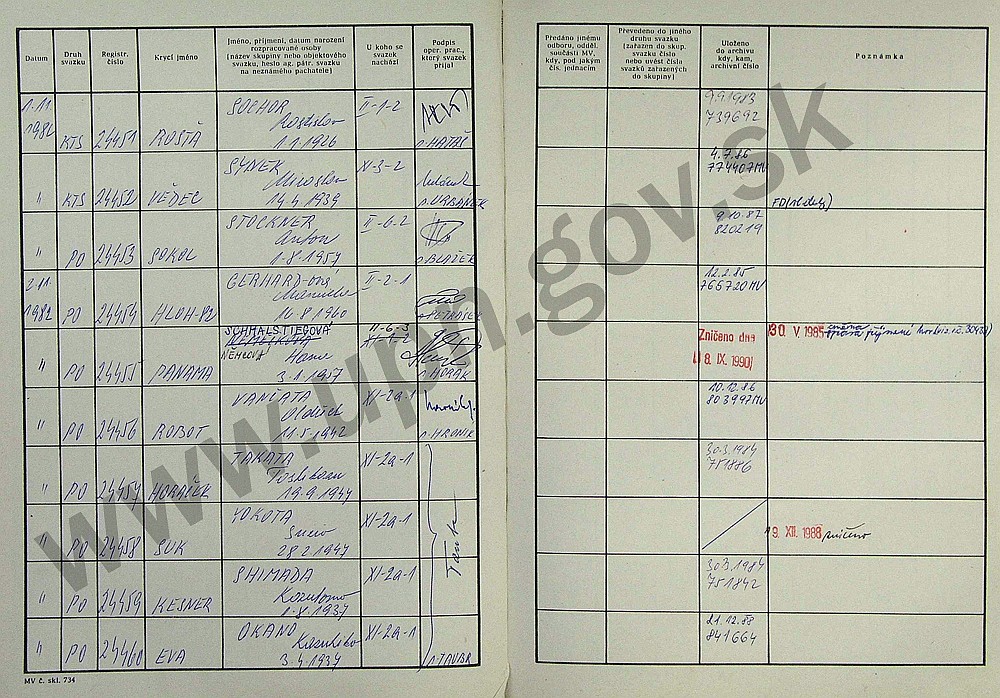 Datum
Druh svazku
Registr. číslo
Krycí jméno
Jméno, příjmení, datum narození rozpracované osoby (název skupiny nebo objektového svazku, heslo ag. pátr. svazku na neznámého pachatele)
U koho se svazek nachází
Podpis oper. prac., který svazek přijal
1.11. 1982 KTS 24451 ROSŤA SOCHOR Rostislav 1.1.1926 II-1-2
" KTS 24452 VĚDEC SYNEK Miroslav 14.4.1939 XI-3-2 p. URBÁNEK
" PO 24453 SOKOL STOCKNER Anton 1.8.1957 II-6-2 p. BLAŽEK
2.11. 1982 PO 24454 HLOH-82 GERHARD-ová 10.8.1960 II-2-1
" PO 24455 PANAMA SCHMALSTIEGOVÁ NĚMCOVÁ Hana 3.1.1957 II-6-3 p. HORÁK
" PO 24456 ROBOT VANČATA Oldřich 11.5.1942 XI-2a-1 p. HRONÍK
" PO 24457 HORÁČEK TAKATA 19.9.1947 XI-2a-1
" PO 24458 SUK YOKOTA 28.2.1947 XI-2a-1
" PO 24459 KESNER SHIMADA 1.8.1937 XI-2a-1
" PO 24460 EVA OKANO Kazuhiko 3.4.1937 XI-2a-1 p. TAUBR
MV č. skl. 734
Předáno jinému odboru, odděl. součásti MV, kdy, pod jakým čís. jednacím
Převedeno do jiného druhu svazku (zařazen do skup. svazku číslo nebo uvést čísla svazků zařazených do skupiny)
Uloženo do archivu kdy, kam, archivní číslo
Poznámka
9.9.1983
739692
4.7.86
774407MV
9.10.87
820219
12.2.85
765720MV
Zničeno dne
8. IX. 1990
30. V. 1985 změna příjmení
10.12.86
803997MV
30.3.1984
751886
9. XII. 1988 zničeno
30.3.1984
751842
21.12.88
841664
www.upn.gov.sk